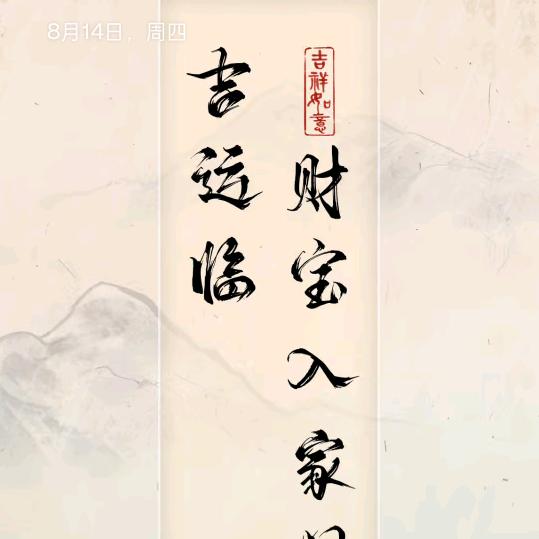 8月14日，周四
吉祥如意
财宝入家
吉运临